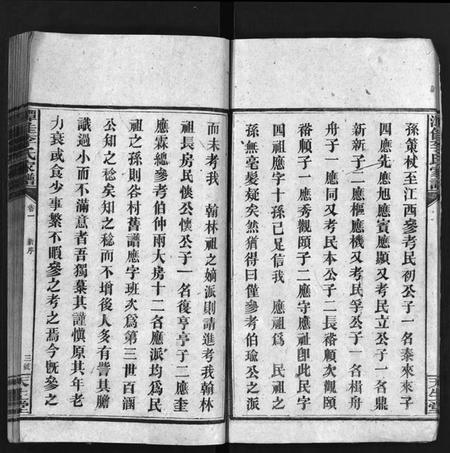 孫策杖至江西參考民初公于一名泰來來子
四應先應旭應賓應顯又考民立公于一名鼎
新新子二應樞應機又考民孚公于一名楫舟
舟子一應同又考民本公子二長裔順次觀頤
裔順子一應秀觀頤子二應守應裕即此民字
四祖應字十孫已足信我 應祖為 民祖之
孫無毫髮疑矣然猶得曰僅參考伯瑜公之派
而未考我 翰林祖之嫡派則請進考我翰林
祖長房民懊公懊公于一名復亨亨子二應奎
應霖總參考伯仲兩大房十二名應派均為民
祖之孫則谷村舊譜應字班次為第三世百涵
公知之稔矣知之稔而不增後人多有訾其膽
識過小而不滿意者吾獨彙其謹慎原其年老
力衰或食少事繁不暇參之考之焉今既參之
李氏家譜
卷一 新序
三 天生堂